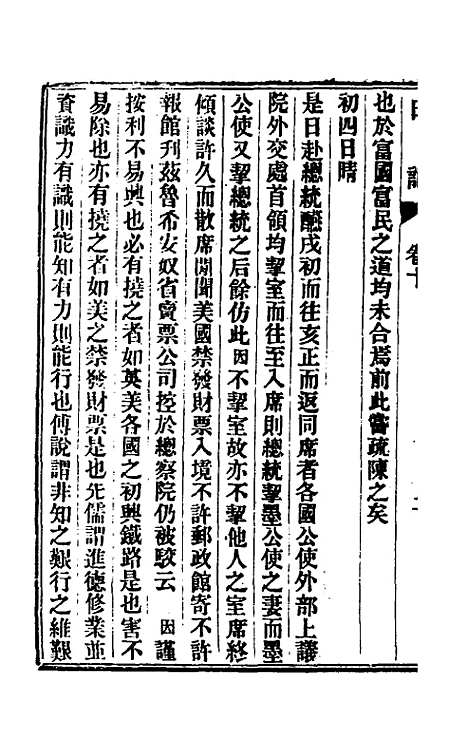 日記 卷十
也於富國富民之道均未合焉前此嘗疏陳之矣
初四日晴
是日赴總統醼戌初而往亥正而返同席者各國公使外部上議
院外交處首領均挈室而往至入席則總統挈墨公使之妻而墨
公使又挈總統之后餘仿此因不挈室故亦不挈他人之室席終
傾談許久而散席閒聞美國禁發財票入境不許郵政館寄不許
報館刋茲魯希安奴省賣票公司控於總察院仍被駮云 因謹
按利不易興也必有撓之者如英美各國之初興鐵路是也害不
易除也亦有撓之者如美之禁發財票是也先儒謂進德修業並
資識力有識則能知有力則能行也傅說謂非知之艱行之維艱